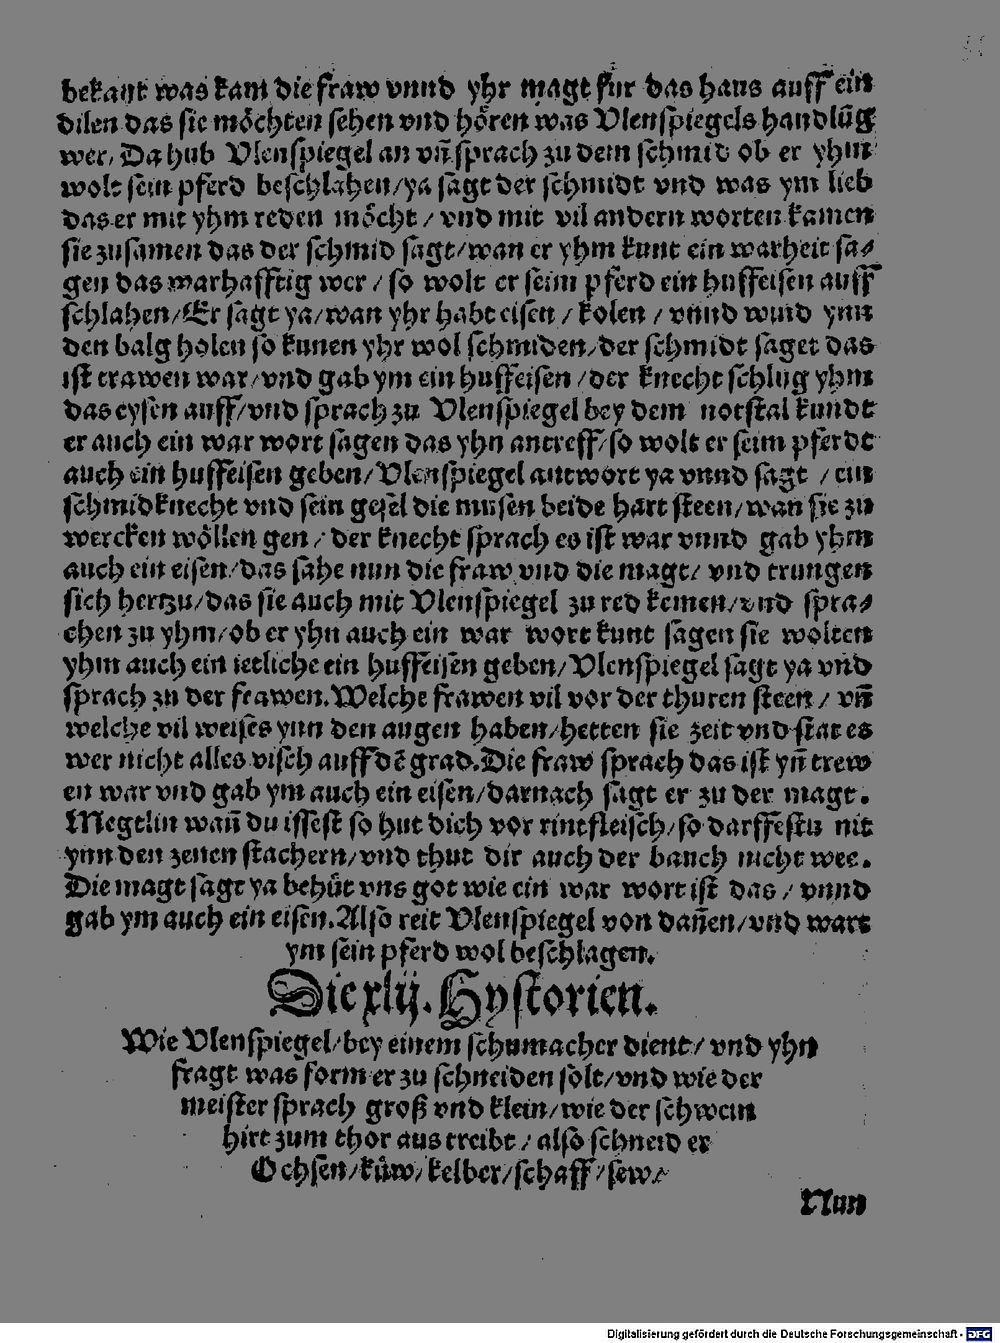 bekant was kam die fraw vnnd yhr magt für das haus auff ein
dilen das sie möchten sehen vnd hören was Vlenspiegels handlūg
wer, Da hub Vlenspiegel an vñ sprach zu dem schmid ob er yhm
wolt sein pferd beschlahen/ya sagt der schmidt vnd was ym lieb
das er mit yhm reden möcht/vnd mit vil andern worten kamen
sie zusamen das der schmid sagt/wan er yhm kunt ein warheit sa⸗
gen das warhafftig wer/so wolt er seim pferd ein huffeisen auff
schlahen/Er sagt ya/wan yhr habt eisen/kolen/vnnd wind ynn
den balg holen so kunen yhr wol schmiden/der schmidt saget das
ist trawen war/vnd gab ym ein huffeisen/der knecht schlug yhm
das eysen auff/vnd sprach zu Vlenspiegel bey dem notstal kundt
er auch ein war wort sagen das yhn antreff/so wolt er seim pferdt
auch ein huffeisen geben/Vlenspiegel antwort ya vnnd sagt/ein
schmidknecht vnd sein gesel die musen beide hart steen/wan sie zu
wercken wöllen gen/der knecht sprach es ist war vnnd gab yhm
auch ein eisen/das sahe nun die fraw vnd die magt/vnd trungen
sich hertzu/das sie auch mit Vlenspiegel zu red kemen/vnd spra⸗
chen zu yhm/ob er yhn auch ein war wort kunt sagen sie wolten
yhm auch ein ietliche ein huffeisen geben/Vlenspiegel sagt ya vnd
sprach zu der frawen. Welche frawen vil vor der thuren steen/vñ
welche vil weises ynn den augen haben/hetten sie zeit vnd stat es
wer nicht alles visch auff dē grad. Die fraw sprach das ist yñ trew
en war vnd gab ym auch ein eisen/darnach sagt er zu der magt.
Megtlin wañ du issest so hut dich vor rintfleisch/so darffestu nit
ynn den zenen stachern/vnd thut dir auch der bauch nicht wee.
Die magt sagt ya behüt vns got wie ein war wort ist das/vnnd
gab ym auch ein eisen. Also reit Vlenspiegel von dañen/vnd wart
ym sein pferd wol beschlagen.
Die xlij. Hystorien.
Wie Vlenspiegel/bey einem schumacher dient/vnd yhn
fragt was form er zu schneiden solt/vnd wie der
meister sprach groß vnd klein/wie der schwein
hirt zum thor aus treibt/also schneid er
Ochsen/küw/kelber/schaff/sew/
Nun
Digitalisierung gefördert durch die Deutsche Forschungsgemeinschaft - DFG